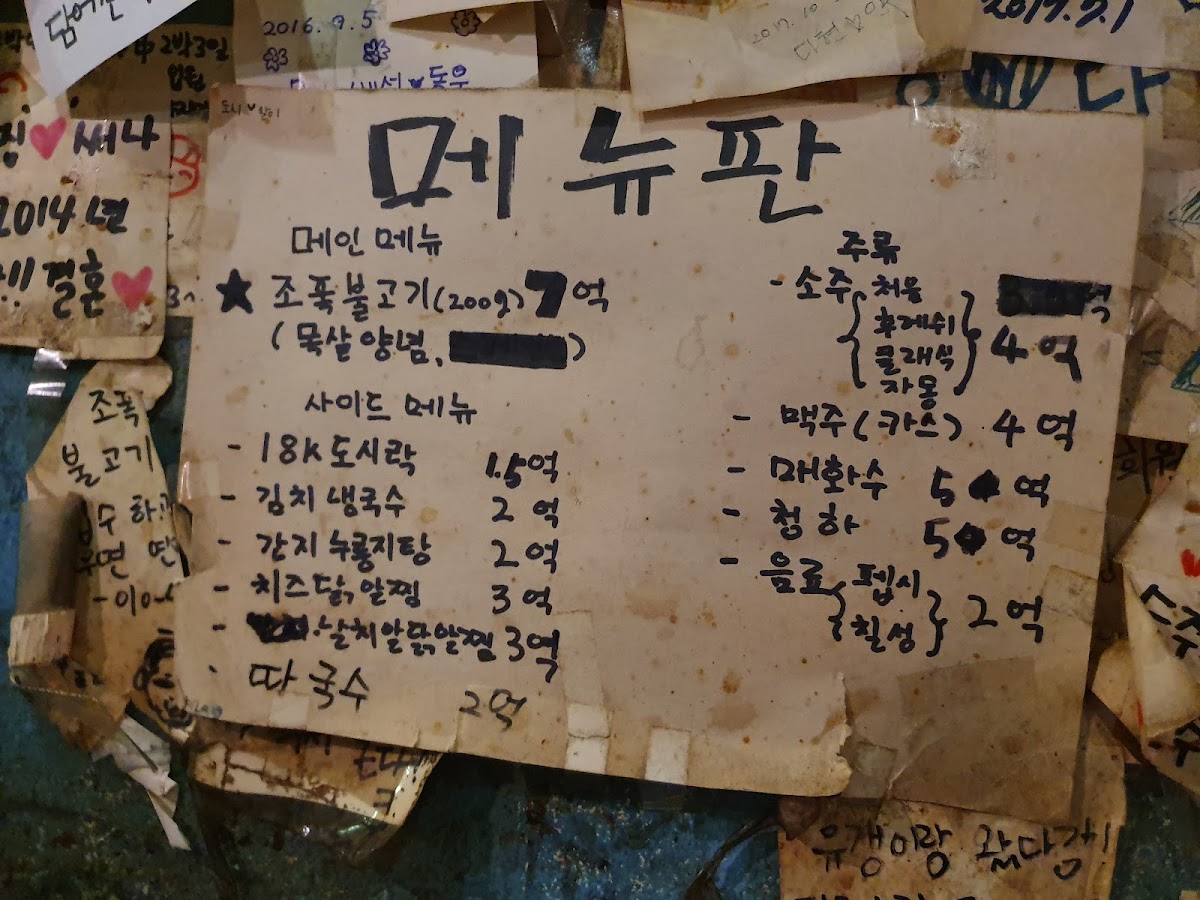 2016.9.5
2017.10
2017.5.1
中 2박3일
써나
2014년
결혼
메뉴판
메인 메뉴
★ 조폭불고기(200g) 7억
(목살양념, )
사이드 메뉴
- 18K도시락 1.5억
- 김치냉국수 2억
- 간지누룽지탕 2억
- 치즈닭알찜 3억
- 날치알닭알찜 3억
· 따국수 2억
주류
- 소주 처음
후레쉬
클래식
자몽
4억
- 맥주(카스) 4억
- 매화수 5억
- 청하 5억
- 음료 펩시
칠성
2억
조폭
불고기
유갱이랑 왔다감!